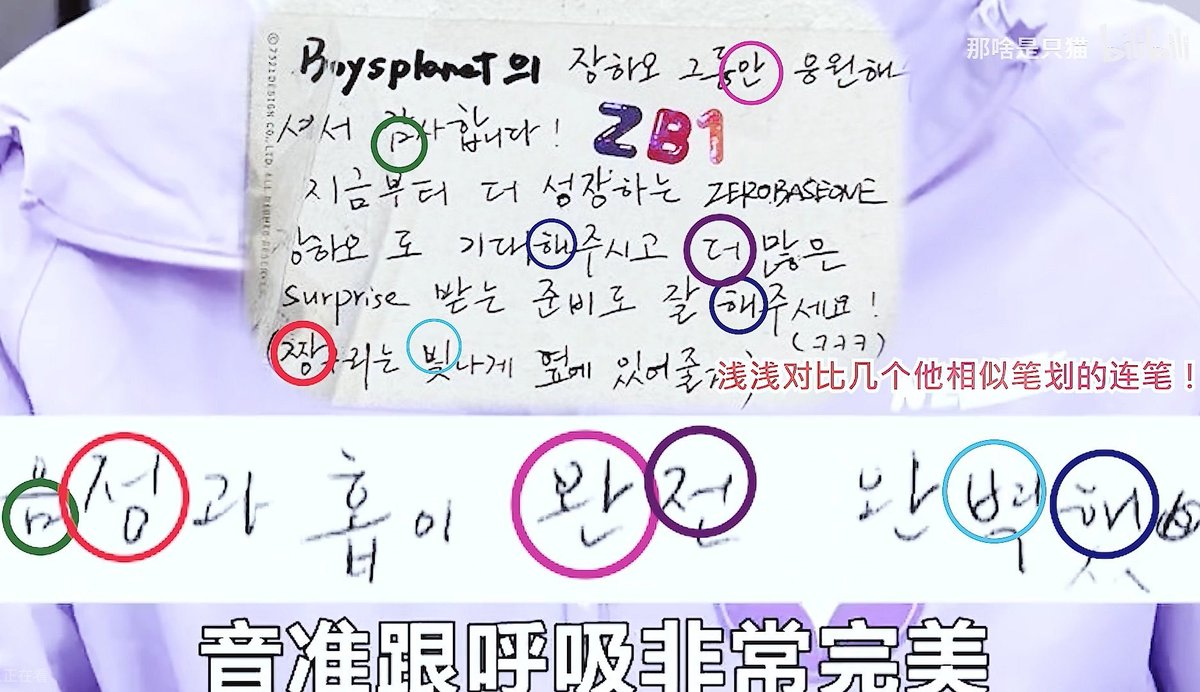 那啥是只猫 bilibili
©7321DESIGN CO.,LTD. ALL RIGHTS RESERVED.
Boysplanet의 장하오 그동안 응원해
셔서 감사합니다!
ZB1
지금부터 더 성장하는 ZEROBASEONE
장하오로 기대해주시고 더 많은
surprise 받는 준비로 잘 해주세요!
(ㅋㅋㅋ)
빛나게 옆에 있어줄
浅浅对比几个他相似笔划的连笔！
음정과 흡이 완전 완벽했
音准跟呼吸非常完美
正在看